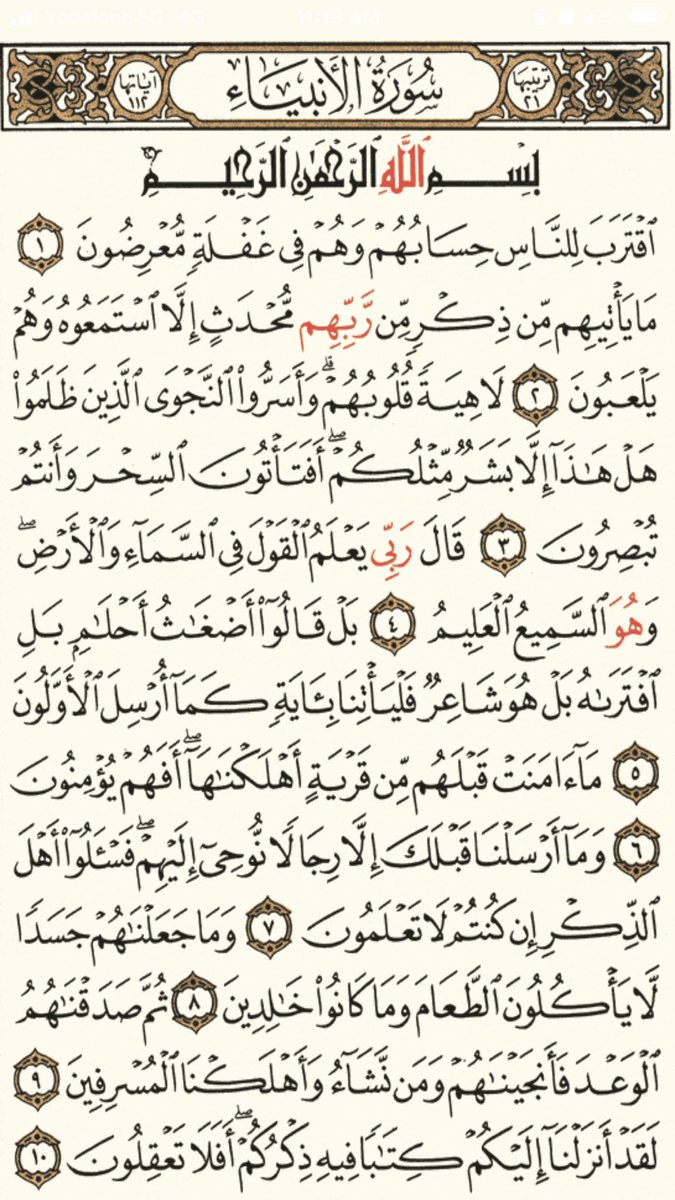 Vodafone EG 4G 11:19 AM 97%
ترتيبها ٢١ سُورَةُ الأَنبِيَاءِ آياتها ١١٢
بِسْمِ ٱللَّهِ ٱلرَّحْمَٰنِ ٱلرَّحِيمِ
ٱقْتَرَبَ لِلنَّاسِ حِسَابُهُمْ وَهُمْ فِى غَفْلَةٍ مُّعْرِضُونَ ١
مَا يَأْتِيهِم مِّن ذِكْرٍ مِّن رَّبِّهِم مُّحْدَثٍ إِلَّا ٱسْتَمَعُوهُ وَهُمْ
يَلْعَبُونَ ٢ لَاهِيَةً قُلُوبُهُمْ ۗ وَأَسَرُّوا۟ ٱلنَّجْوَى ٱلَّذِينَ ظَلَمُوا۟
هَلْ هَٰذَآ إِلَّا بَشَرٌ مِّثْلُكُمْ ۖ أَفَتَأْتُونَ ٱلسِّحْرَ وَأَنتُمْ
تُبْصِرُونَ ٣ قَالَ رَبِّى يَعْلَمُ ٱلْقَوْلَ فِى ٱلسَّمَآءِ وَٱلْأَرْضِ ۖ
وَهُوَ ٱلسَّمِيعُ ٱلْعَلِيمُ ٤ بَلْ قَالُوٓا۟ أَضْغَٰثُ أَحْلَٰمٍۭ بَلِ
ٱفْتَرَىٰهُ بَلْ هُوَ شَاعِرٌ فَلْيَأْتِنَا بِـَٔايَةٍ كَمَآ أُرْسِلَ ٱلْأَوَّلُونَ
٥ مَآ ءَامَنَتْ قَبْلَهُم مِّن قَرْيَةٍ أَهْلَكْنَٰهَآ ۖ أَفَهُمْ يُؤْمِنُونَ
٦ وَمَآ أَرْسَلْنَا قَبْلَكَ إِلَّا رِجَالًا نُّوحِىٓ إِلَيْهِمْ ۖ فَسْـَٔلُوٓا۟ أَهْلَ
ٱلذِّكْرِ إِن كُنتُمْ لَا تَعْلَمُونَ ٧ وَمَا جَعَلْنَٰهُمْ جَسَدًا
لَّا يَأْكُلُونَ ٱلطَّعَامَ وَمَا كَانُوا۟ خَٰلِدِينَ ٨ ثُمَّ صَدَقْنَٰهُمُ
ٱلْوَعْدَ فَأَنجَيْنَٰهُمْ وَمَن نَّشَآءُ وَأَهْلَكْنَا ٱلْمُسْرِفِينَ ٩
لَقَدْ أَنزَلْنَآ إِلَيْكُمْ كِتَٰبًا فِيهِ ذِكْرُكُمْ ۖ أَفَلَا تَعْقِلُونَ ١٠